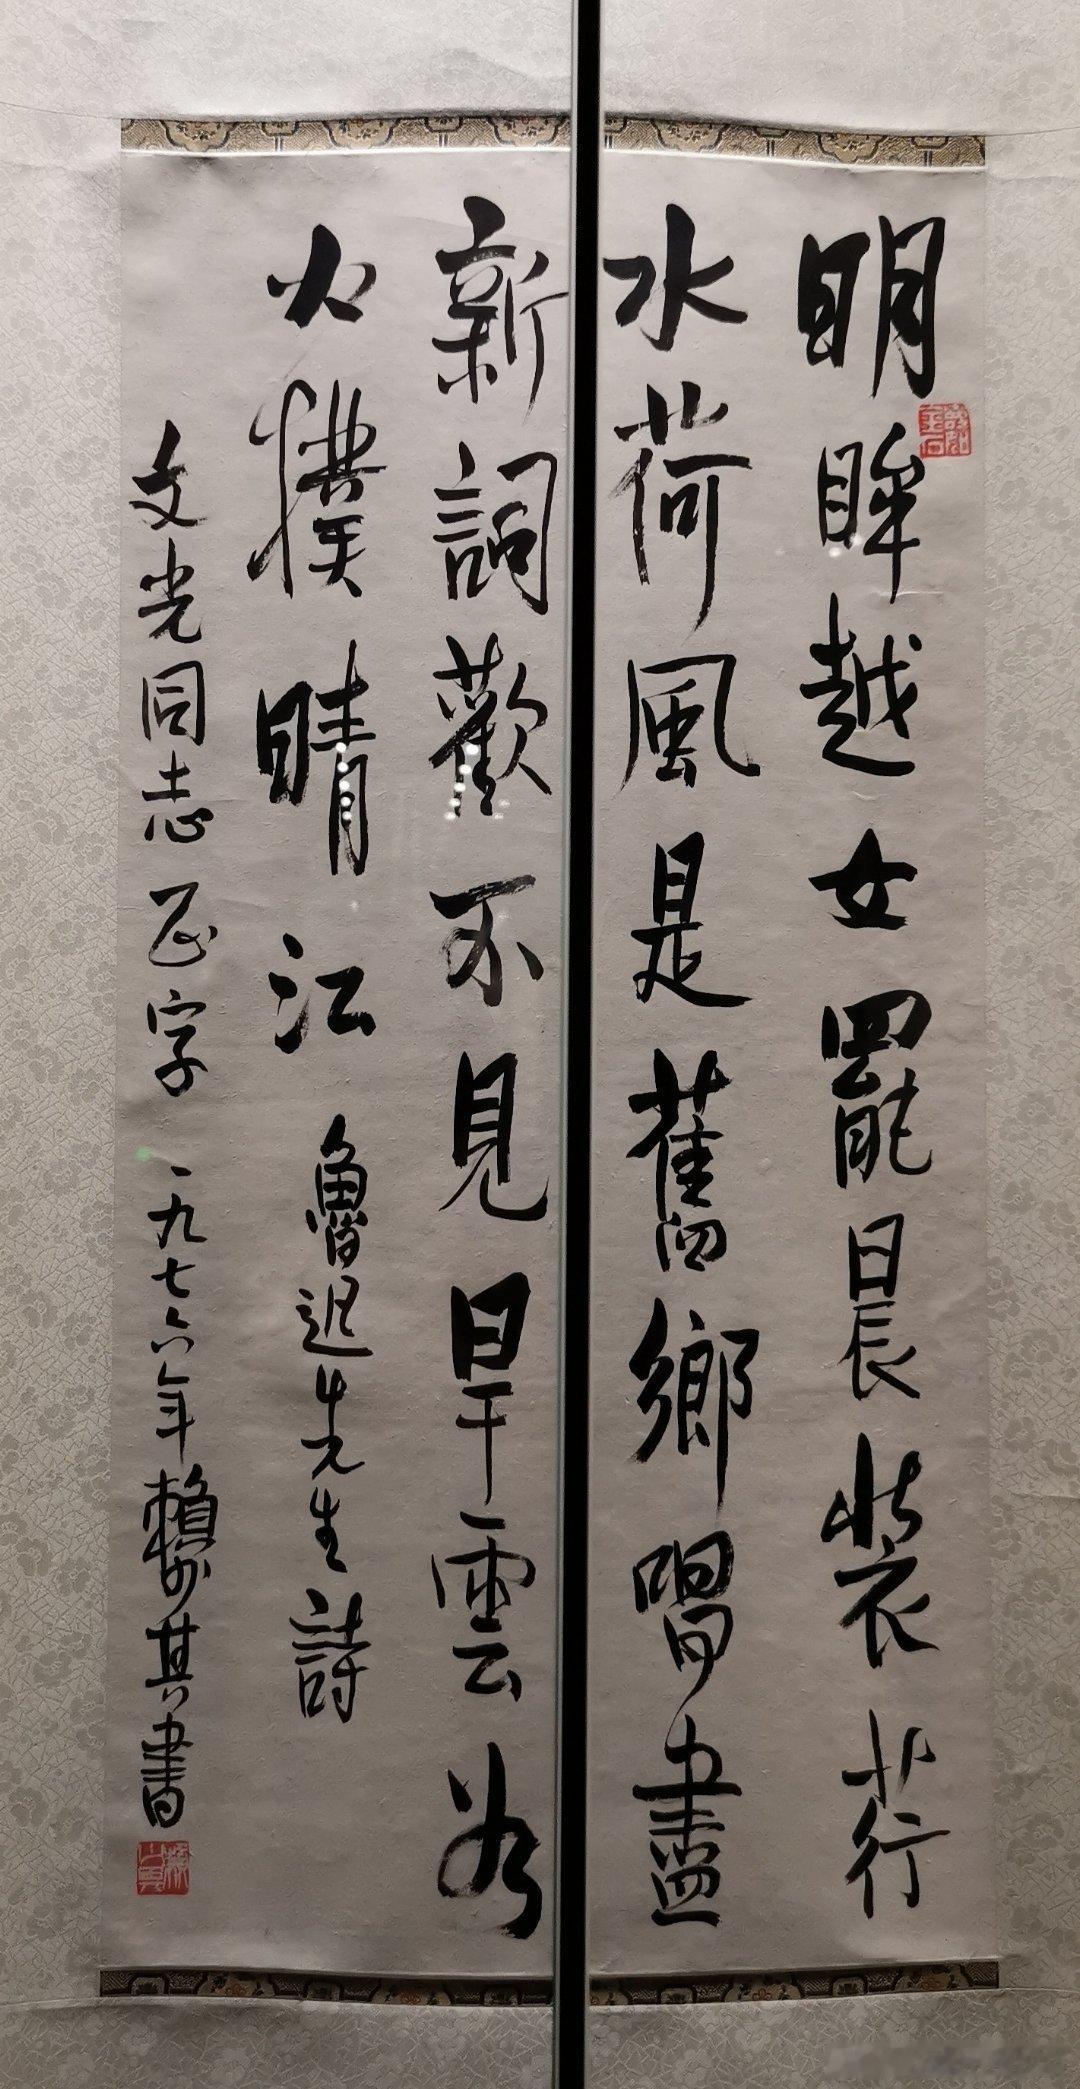 明眸越女罷晨裝荇
水荷風是舊鄉唱盡
新詞歡不見旱雲如
火撲晴江 魯迅先生詩
文光同志正字 一九七六年賴少其書
壽如金石